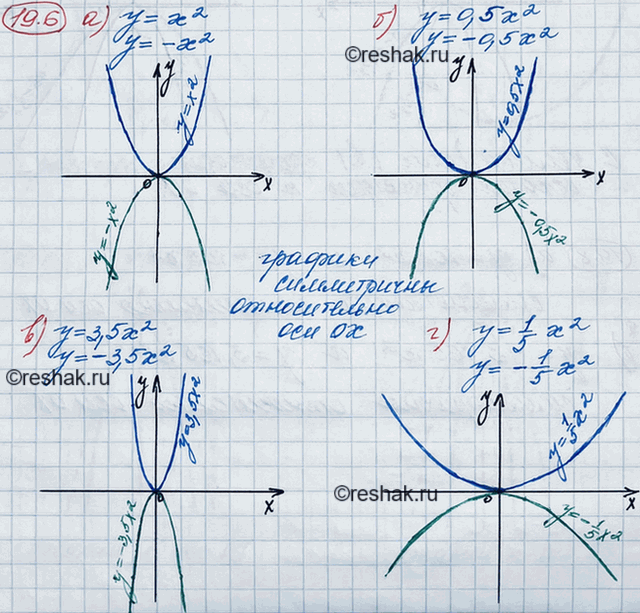 19.6 а) y = x²
y = -x²
б) y = 0,5x²
y = -0,5x²
©reshak.ru
y
y=x²
0
x
y=-x²
y
y=0,5x²
0
x
y=-0,5x²
графики
симметричны
относительно
оси OX
в) y=3,5x²
y=-3,5x²
©reshak.ru
г) y = 1/5 x²
y = -1/5 x²
y
y=3,5x²
0
x
y=-3,5x²
y
y=1/5x²
©reshak.ru
0
x
y=-1/5x²